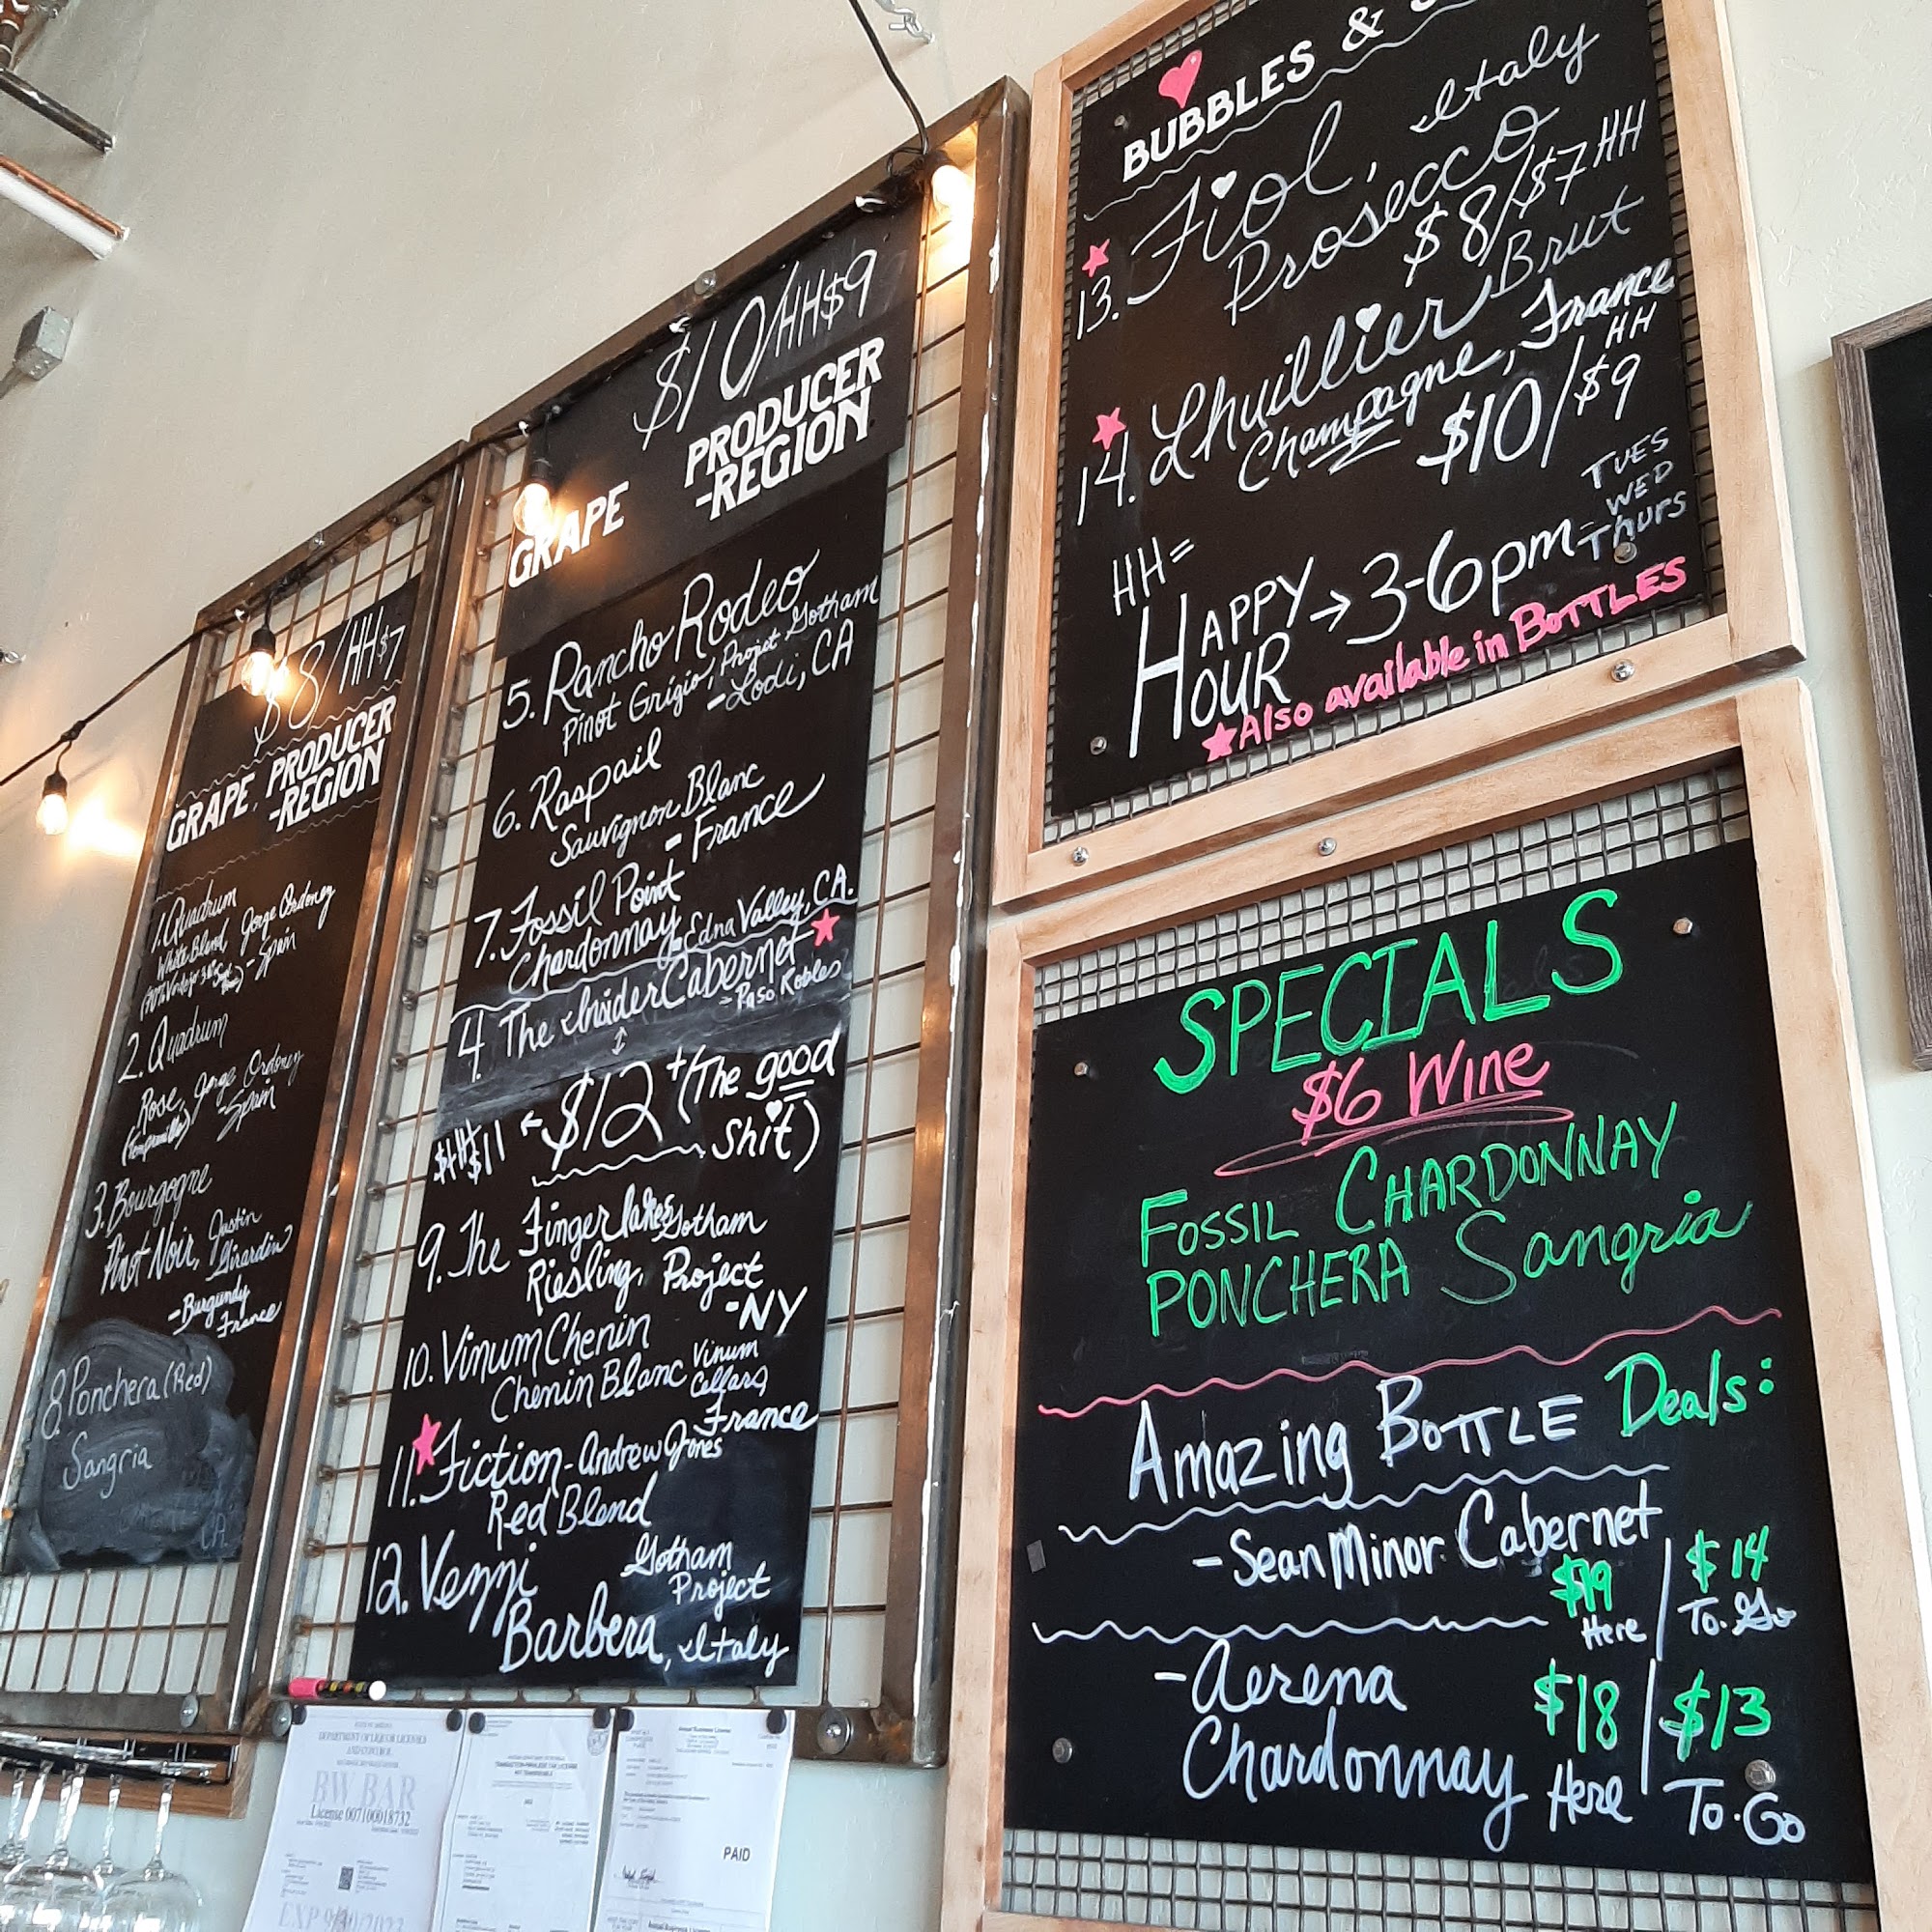 $8/HH$7
GRAPE, PRODUCER
-REGION
1. Quadrum
White Blend Jorge Ordoney
- Spain
2. Quadrum
Rose, Jorge Ordoney
- Spain
3. Bourgogne
Pinot Noir, Justin
Girardin
- Burgundy
France
8. Ponchera (Red)
Sangria
CA.
$10/HH$9
GRAPE PRODUCER
-REGION
5. Rancho Rodeo
Pinot Grigio, Projet Gotham
- Lodi, CA
6. Raspail
Sauvignon Blanc
- France
7. Fossil Point
Chardonnay - Edna Valley, CA.
4. The Insider Cabernet
- Paso Robles
$12+ (The good
shit)
9. The Finger lakes Gotham
Riesling, Project
- NY
10. Vinum Chenin
Chenin Blanc Vinum
Cellars,
France
11. Fiction - Andrew Jones
Red Blend
12. Vezzi Gotham
Project
Barbera, Italy
BUBBLES &
13. Fiol, Italy
Prosecco
$8/$7 HH
14. Lhuillier Brut
Champagne, France
$10/$9 HH
HH=
HAPPY
HOUR → 3-6pm - TUES
WED
Thurs
Also available in BOTTLES
SPECIALS
$6 Wine
FOSSIL CHARDONNAY
PONCHERA Sangria
Amazing BOTTLE Deals:
- Sean Minor Cabernet
$19 / $14
Here To-Go
- Aerena $18 / $13
Chardonnay Here To-Go
DEPARTMENT OF LIQUOR LICENSES
AND CONTROL
BW BAR
License 007100018732
PAID